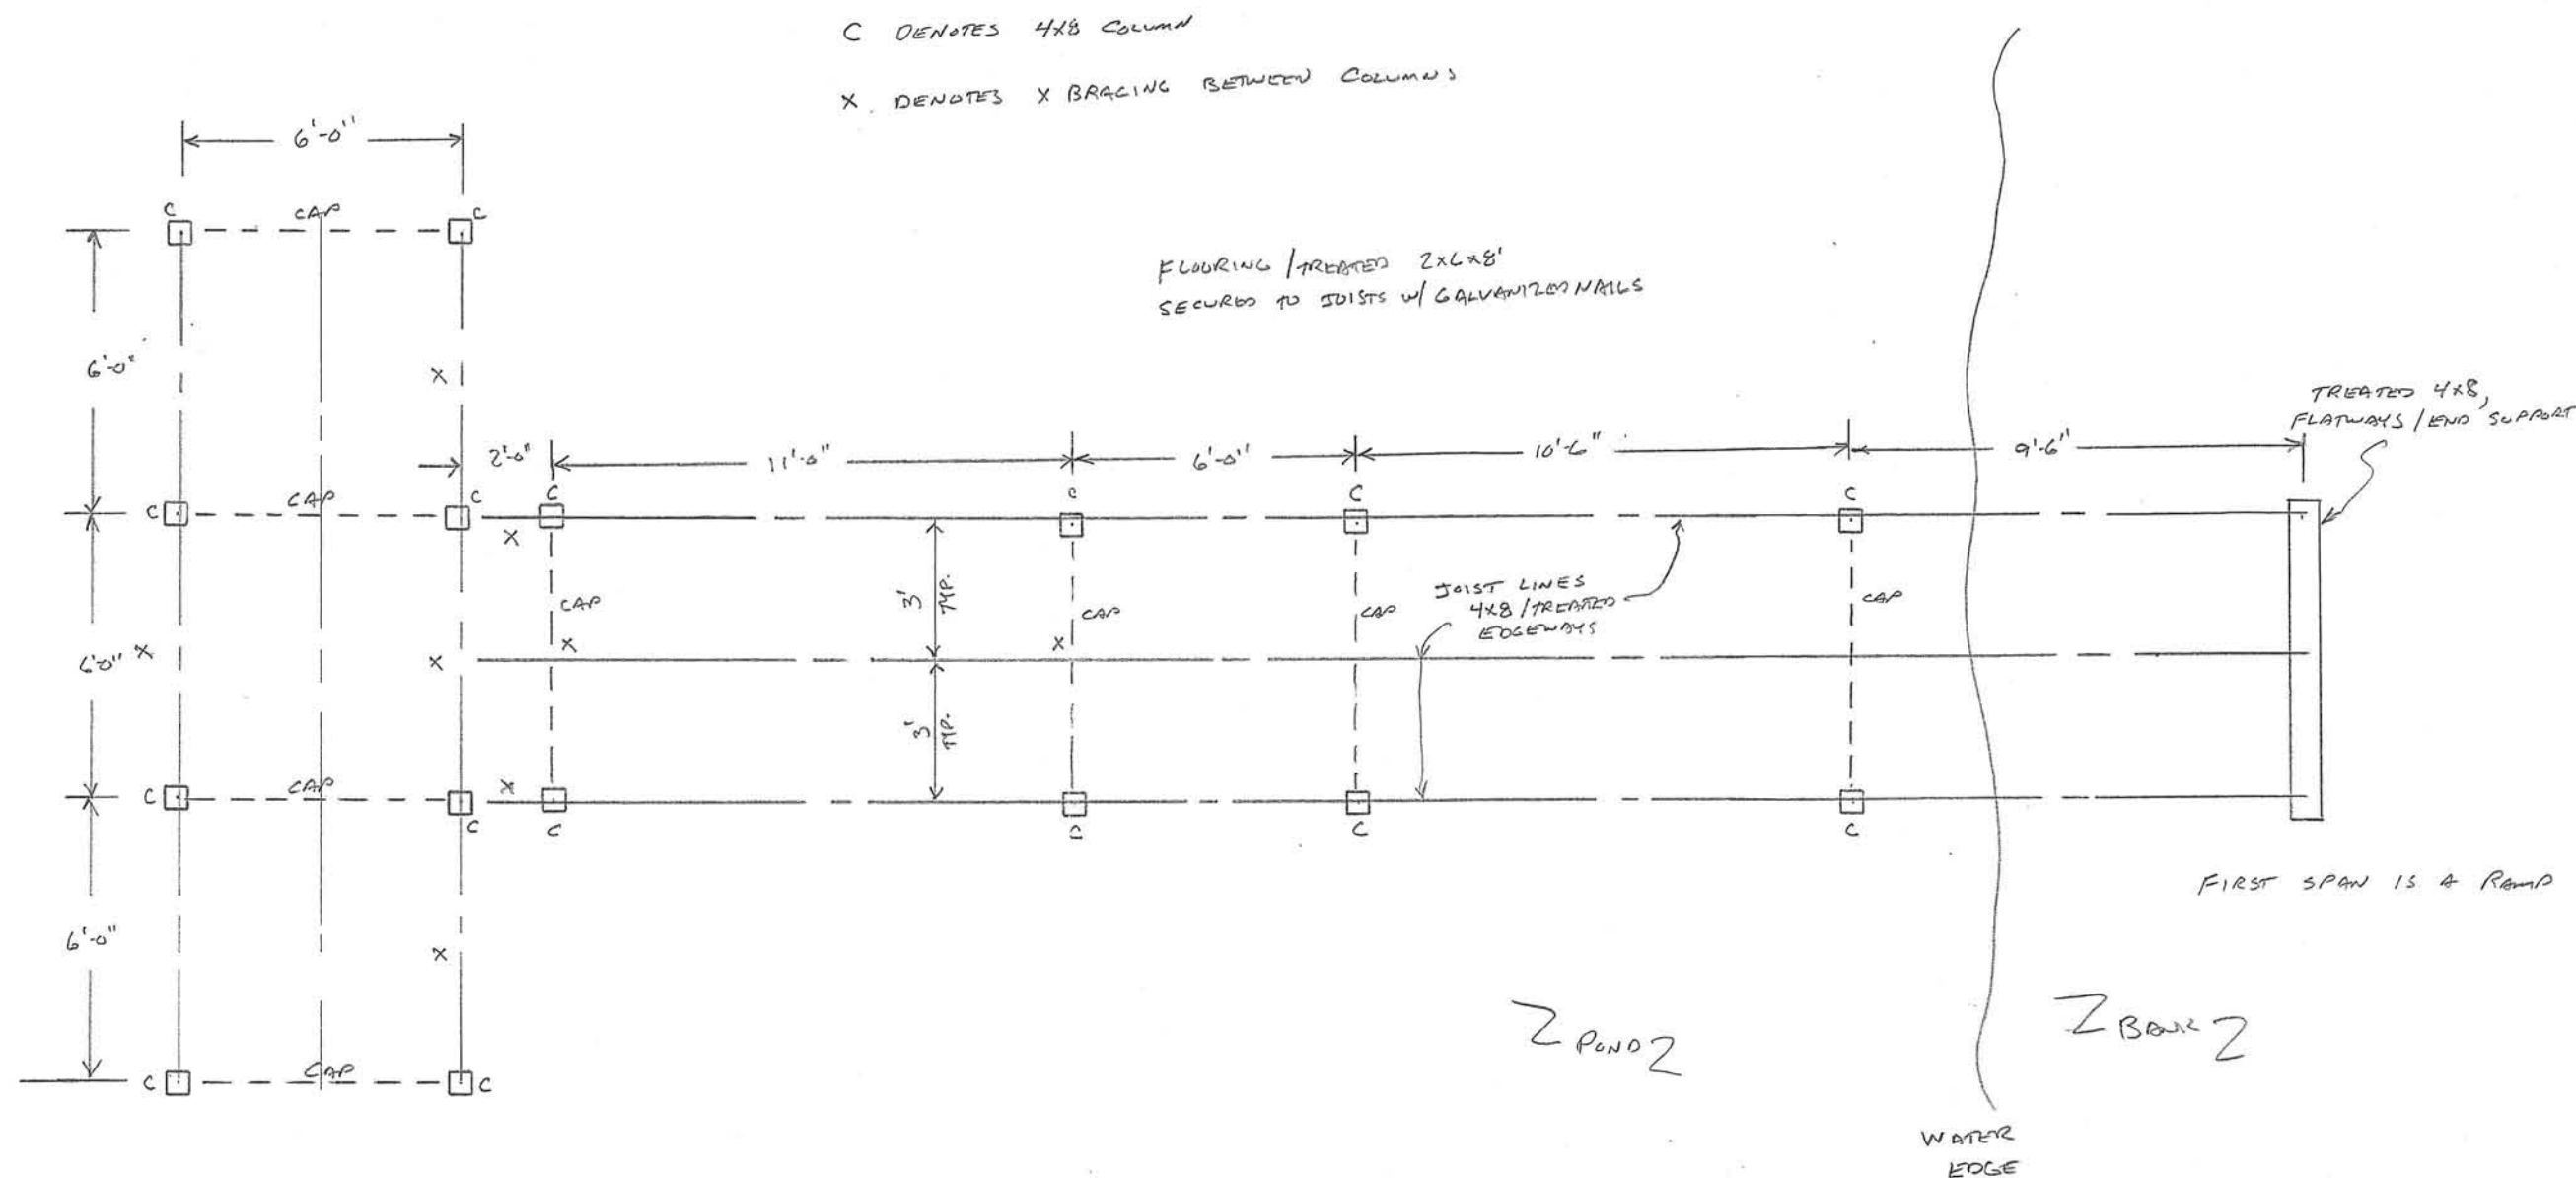 C DENOTES 4x8 COLUMN
X DENOTES X BRACING BETWEEN COLUMNS
6'-0"
C CAP C
FLOORING / TREATED 2x6x8'
SECURED TO JOISTS W/ GALVANIZED NAILS
6'-0"
X
TREATED 4x8,
FLATWAYS / END SUPPORT
2'-0" 11'-0" 6'-0" 10'-6" 9'-6"
C CAP C C C C C
X
3' TYP.
JOIST LINES
4x8 / TREATED
EDGEWAYS
CAP CAP CAP CAP
6'-0" X X X X
3' TYP.
C CAP X
C C C C C
FIRST SPAN IS A RAMP
6'-0"
X
POND
BANK
C CAP C
WATER
EDGE